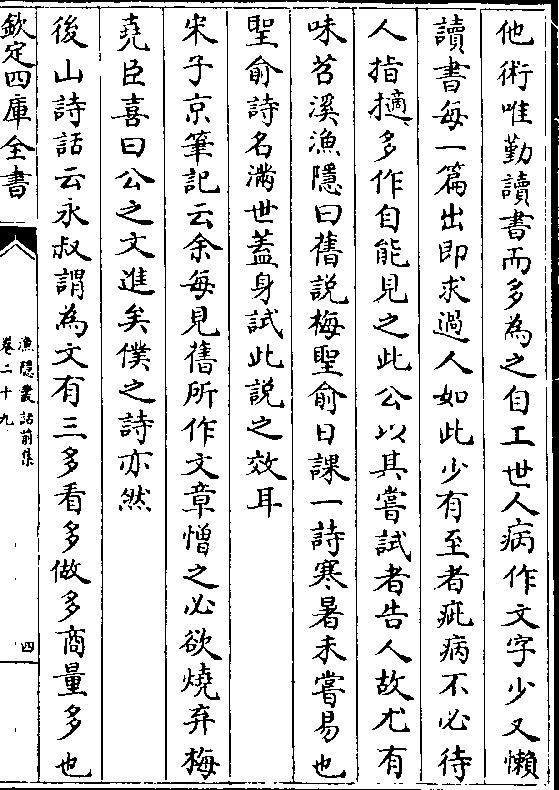 他術唯勤讀書而多為之自工世人病作文字少又懶
讀書每一篇出即求過人如此少有至者疵病不必待
人指擿多作自能見之此公以其嘗試者告人故尤有
味苕溪漁隱曰舊說梅聖俞日課一詩寒暑未嘗易也
聖俞詩名滿世蓋身試此說之效耳
宋子京筆記云余每見舊所作文章憎之必欲燒弃梅
堯臣喜曰公之文進矣僕之詩亦然
後山詩話云永叔謂為文有三多看多做多商量多也
欽定四庫全書
漁隱叢話前集
卷二十九
四